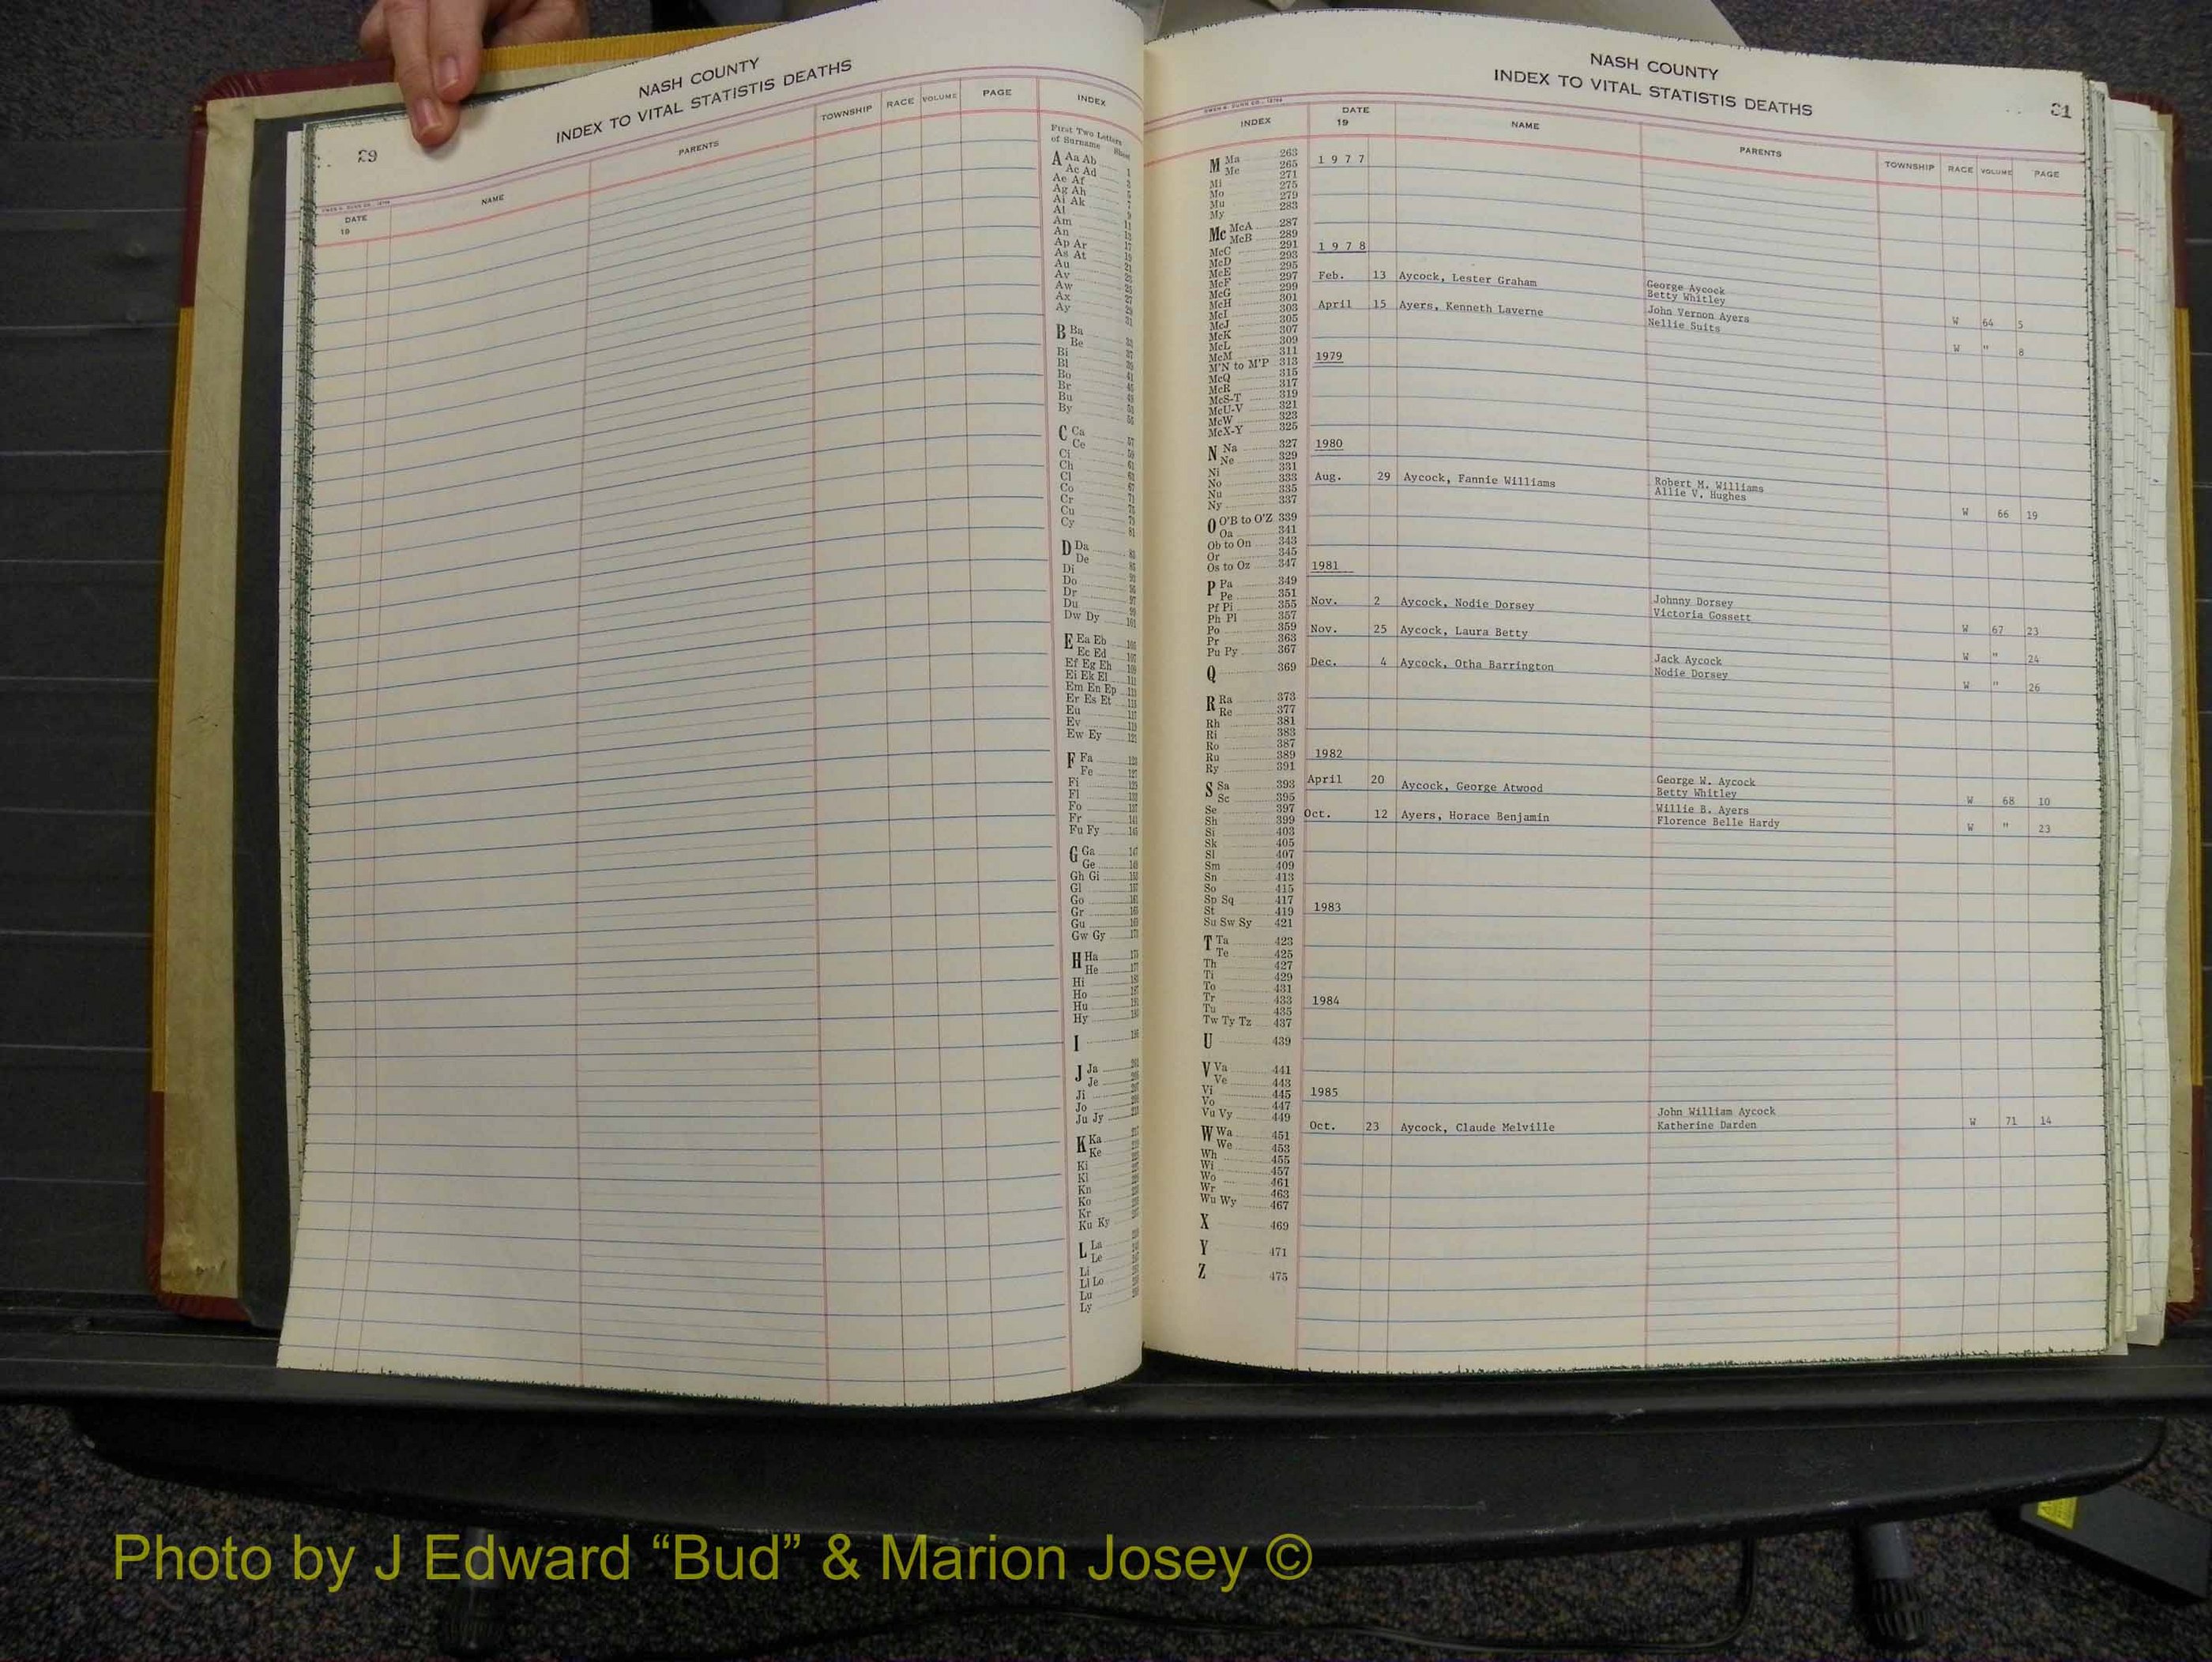 NASH COUNTY
INDEX TO VITAL STATISTIS DEATHS
29
DATE
19
NAME
PARENTS
TOWNSHIP
RACE
VOLUME
PAGE
INDEX
First Two Letters
of Surname
A Aa Ab
Ac Ad
Ae Af
Ag Ah
Ai Ak
Al
Am
An
Ap Ar
As At
Au
Av
Aw
Ax
Ay
B Ba
Be
Bi
Bl
Bo
Br
Bu
By
C Ca
Ce
Ci
Ch
Cl
Co
Cr
Cu
Cy
D Da
De
Di
Do
Dr
Du
Dw Dy
E Ea Eb
Ec Ed
Ef Eg Eh
Ei Ek El
Em En Ep
Er Es Et
Eu
Ev
Ew Ey
F Fa
Fe
Fi
Fl
Fo
Fr
Fu Fy
G Ga
Ge
Gh Gi
Gl
Go
Gr
Gu
Gw Gy
H Ha
He
Hi
Ho
Hu
Hy
I
J Ja
Je
Ji
Jo
Ju Jy
K Ka
Ke
Ki
Kl
Kn
Ko
Kr
Ku Ky
L La
Le
Li
Ll Lo
Lu
Ly
NASH COUNTY
INDEX TO VITAL STATISTIS DEATHS
31
INDEX
DATE
19
NAME
PARENTS
TOWNSHIP
RACE
VOLUME
PAGE
M Ma 263
Me 265
Mi 271
Mo 275
Mu 279
My 283
Mc McA 287
McB 289
McC 291
McD 293
McE 295
McF 297
McG 299
McH 301
McI 303
McJ 305
McK 307
McL 309
McM 311
M'N to M'P 313
McQ 315
McR 317
McS-T 319
McU-V 321
McW 323
McX-Y 325
N Na 327
Ne 329
Ni 331
No 333
Nu 335
Ny 337
O O'B to O'Z 339
Oa 341
Ob to On 343
Or 345
Os to Oz 347
P Pa 349
Pe 351
Pf Pi 355
Ph Pl 357
Po 359
Pr 363
Pu Py 367
Q 369
R Ra 373
Re 377
Rh 381
Ri 383
Ro 387
Ru 389
Ry 391
S Sa 393
Sc 395
Se 397
Sh 399
Si 403
Sk 405
Sl 407
Sm 409
Sn 413
So 415
Sp Sq 417
St 419
Su Sw Sy 421
T Ta 423
Te 425
Th 427
Ti 429
To 431
Tr 433
Tu 435
Tw Ty Tz 437
U 439
V Va 441
Ve 443
Vi 445
Vo 447
Vu Vy 449
W Wa 451
We 453
Wh 455
Wi 457
Wo 461
Wr 463
Wu Wy 467
X 469
Y 471
Z 475
1977
1978
Feb. 13 Aycock, Lester Graham George Aycock
Betty Whitley
W 64 5
April 15 Ayers, Kenneth Laverne John Vernon Ayers
Nellie Suits
W " 8
1979
1980
Aug. 29 Aycock, Fannie Williams Robert M. Williams
Allie V. Hughes
W 66 19
1981
Nov. 2 Aycock, Nodie Dorsey Johnny Dorsey
Victoria Gossett
W 67 23
Nov. 25 Aycock, Laura Betty
W " 24
Dec. 4 Aycock, Otha Barrington Jack Aycock
Nodie Dorsey
W " 26
1982
April 20 Aycock, George Atwood George W. Aycock
Betty Whitley
W 68 10
Oct. 12 Ayers, Horace Benjamin Willie B. Ayers
Florence Belle Hardy
W " 23
1983
1984
1985
John William Aycock
Oct. 23 Aycock, Claude Melville Katherine Darden W 71 14
Photo by J Edward “Bud” & Marion Josey ©